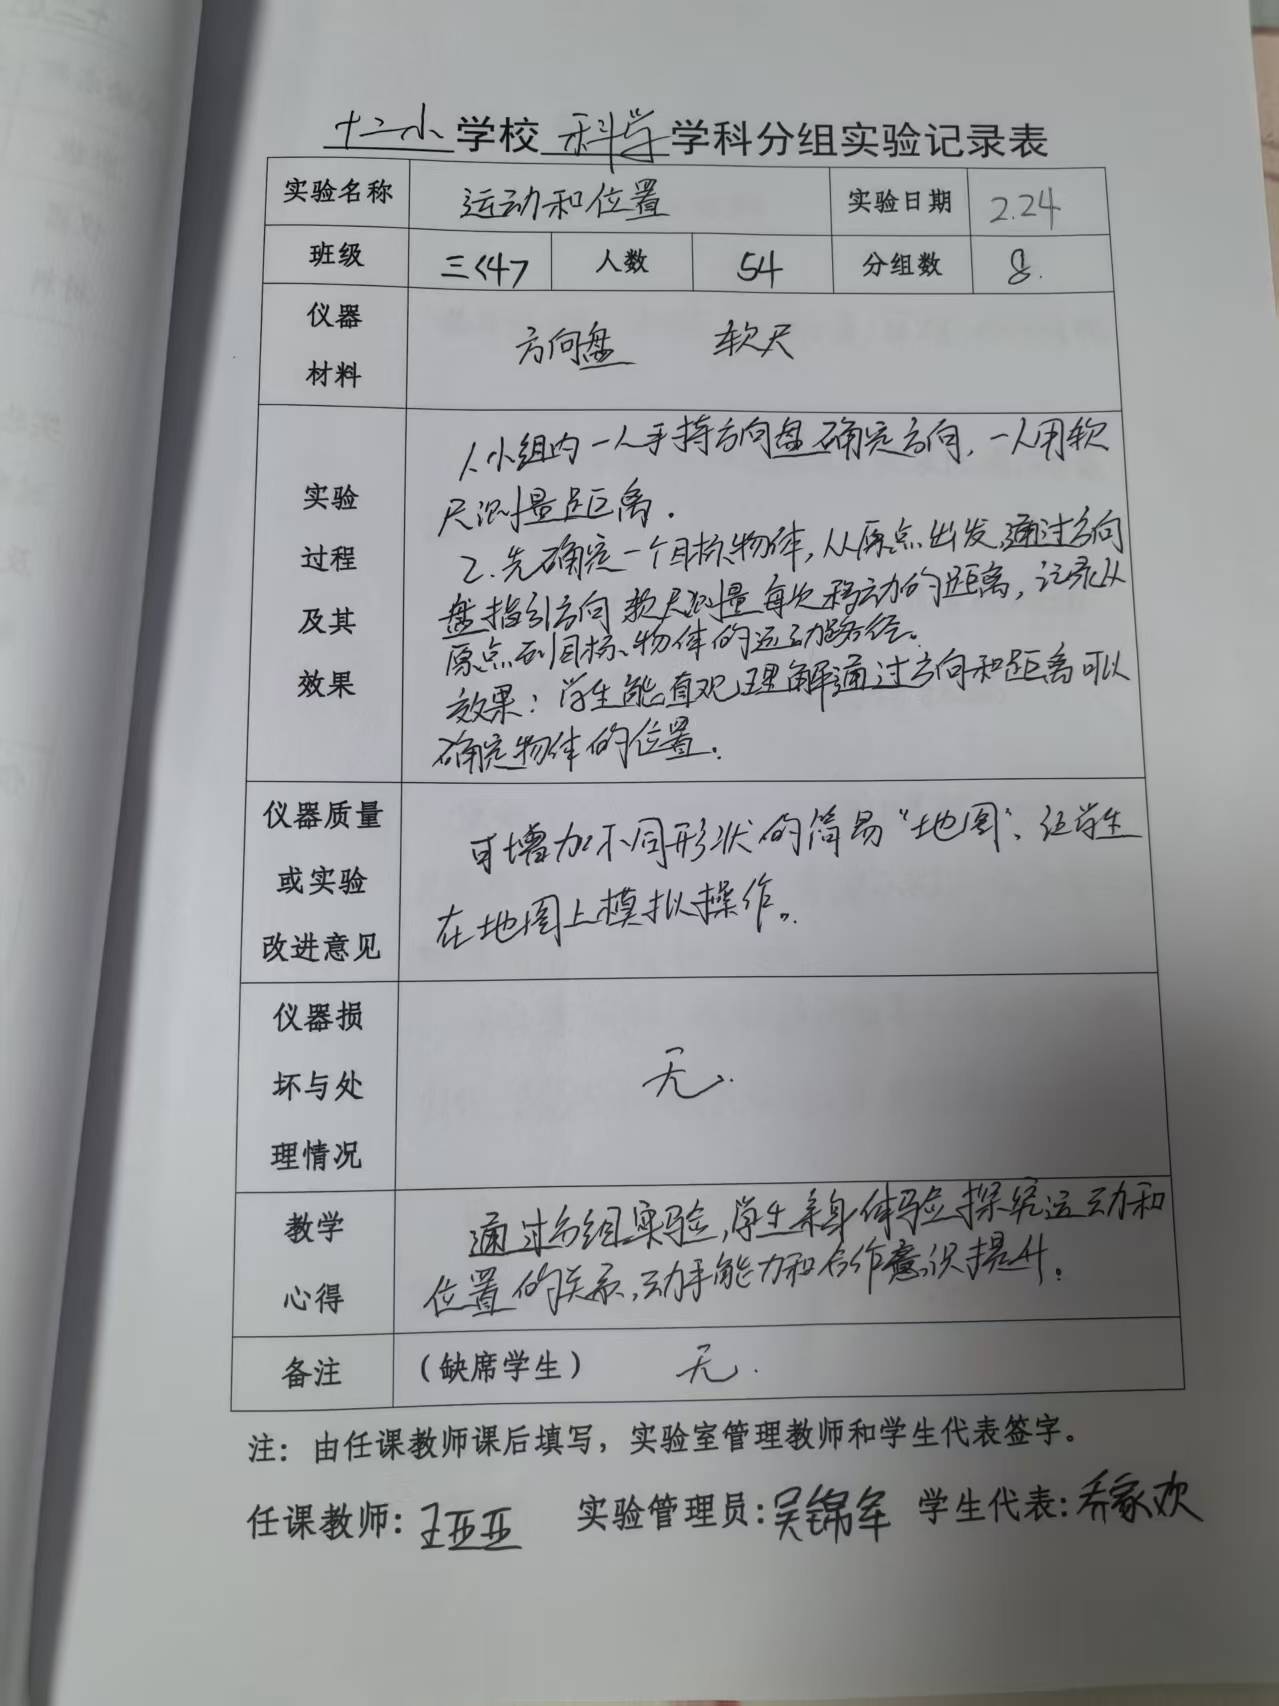 十二小学校科学学科分组实验记录表
实验名称 运动和位置 实验日期 2.24
班级 三<4> 人数 54 分组数 8.
仪器
材料
方向盘 软尺
实验
过程
及其
效果
1.小组内一人手持方向盘确定方向，一人用软
尺测量距离.
2.先确定一个目标物体,从原点出发,通过方向
盘指引方向 软尺测量每次移动的距离，记录从
原点到目标物体的运动路径。
效果：学生能直观理解通过方向和距离可以
确定物体的位置.
仪器质量
或实验
改进意见
可增加不同形状的简易“地图”，让学生
在地图上模拟操作。
仪器损
坏与处
理情况
无.
教学
心得
通过分组实验,学生亲身体验探究运动和
位置的关系,动手能力和合作意识提升.
备注 （缺席学生） 无.
注：由任课教师课后填写，实验室管理教师和学生代表签字。
任课教师：王亚亚 实验管理员：吴锦军 学生代表：乔家欢